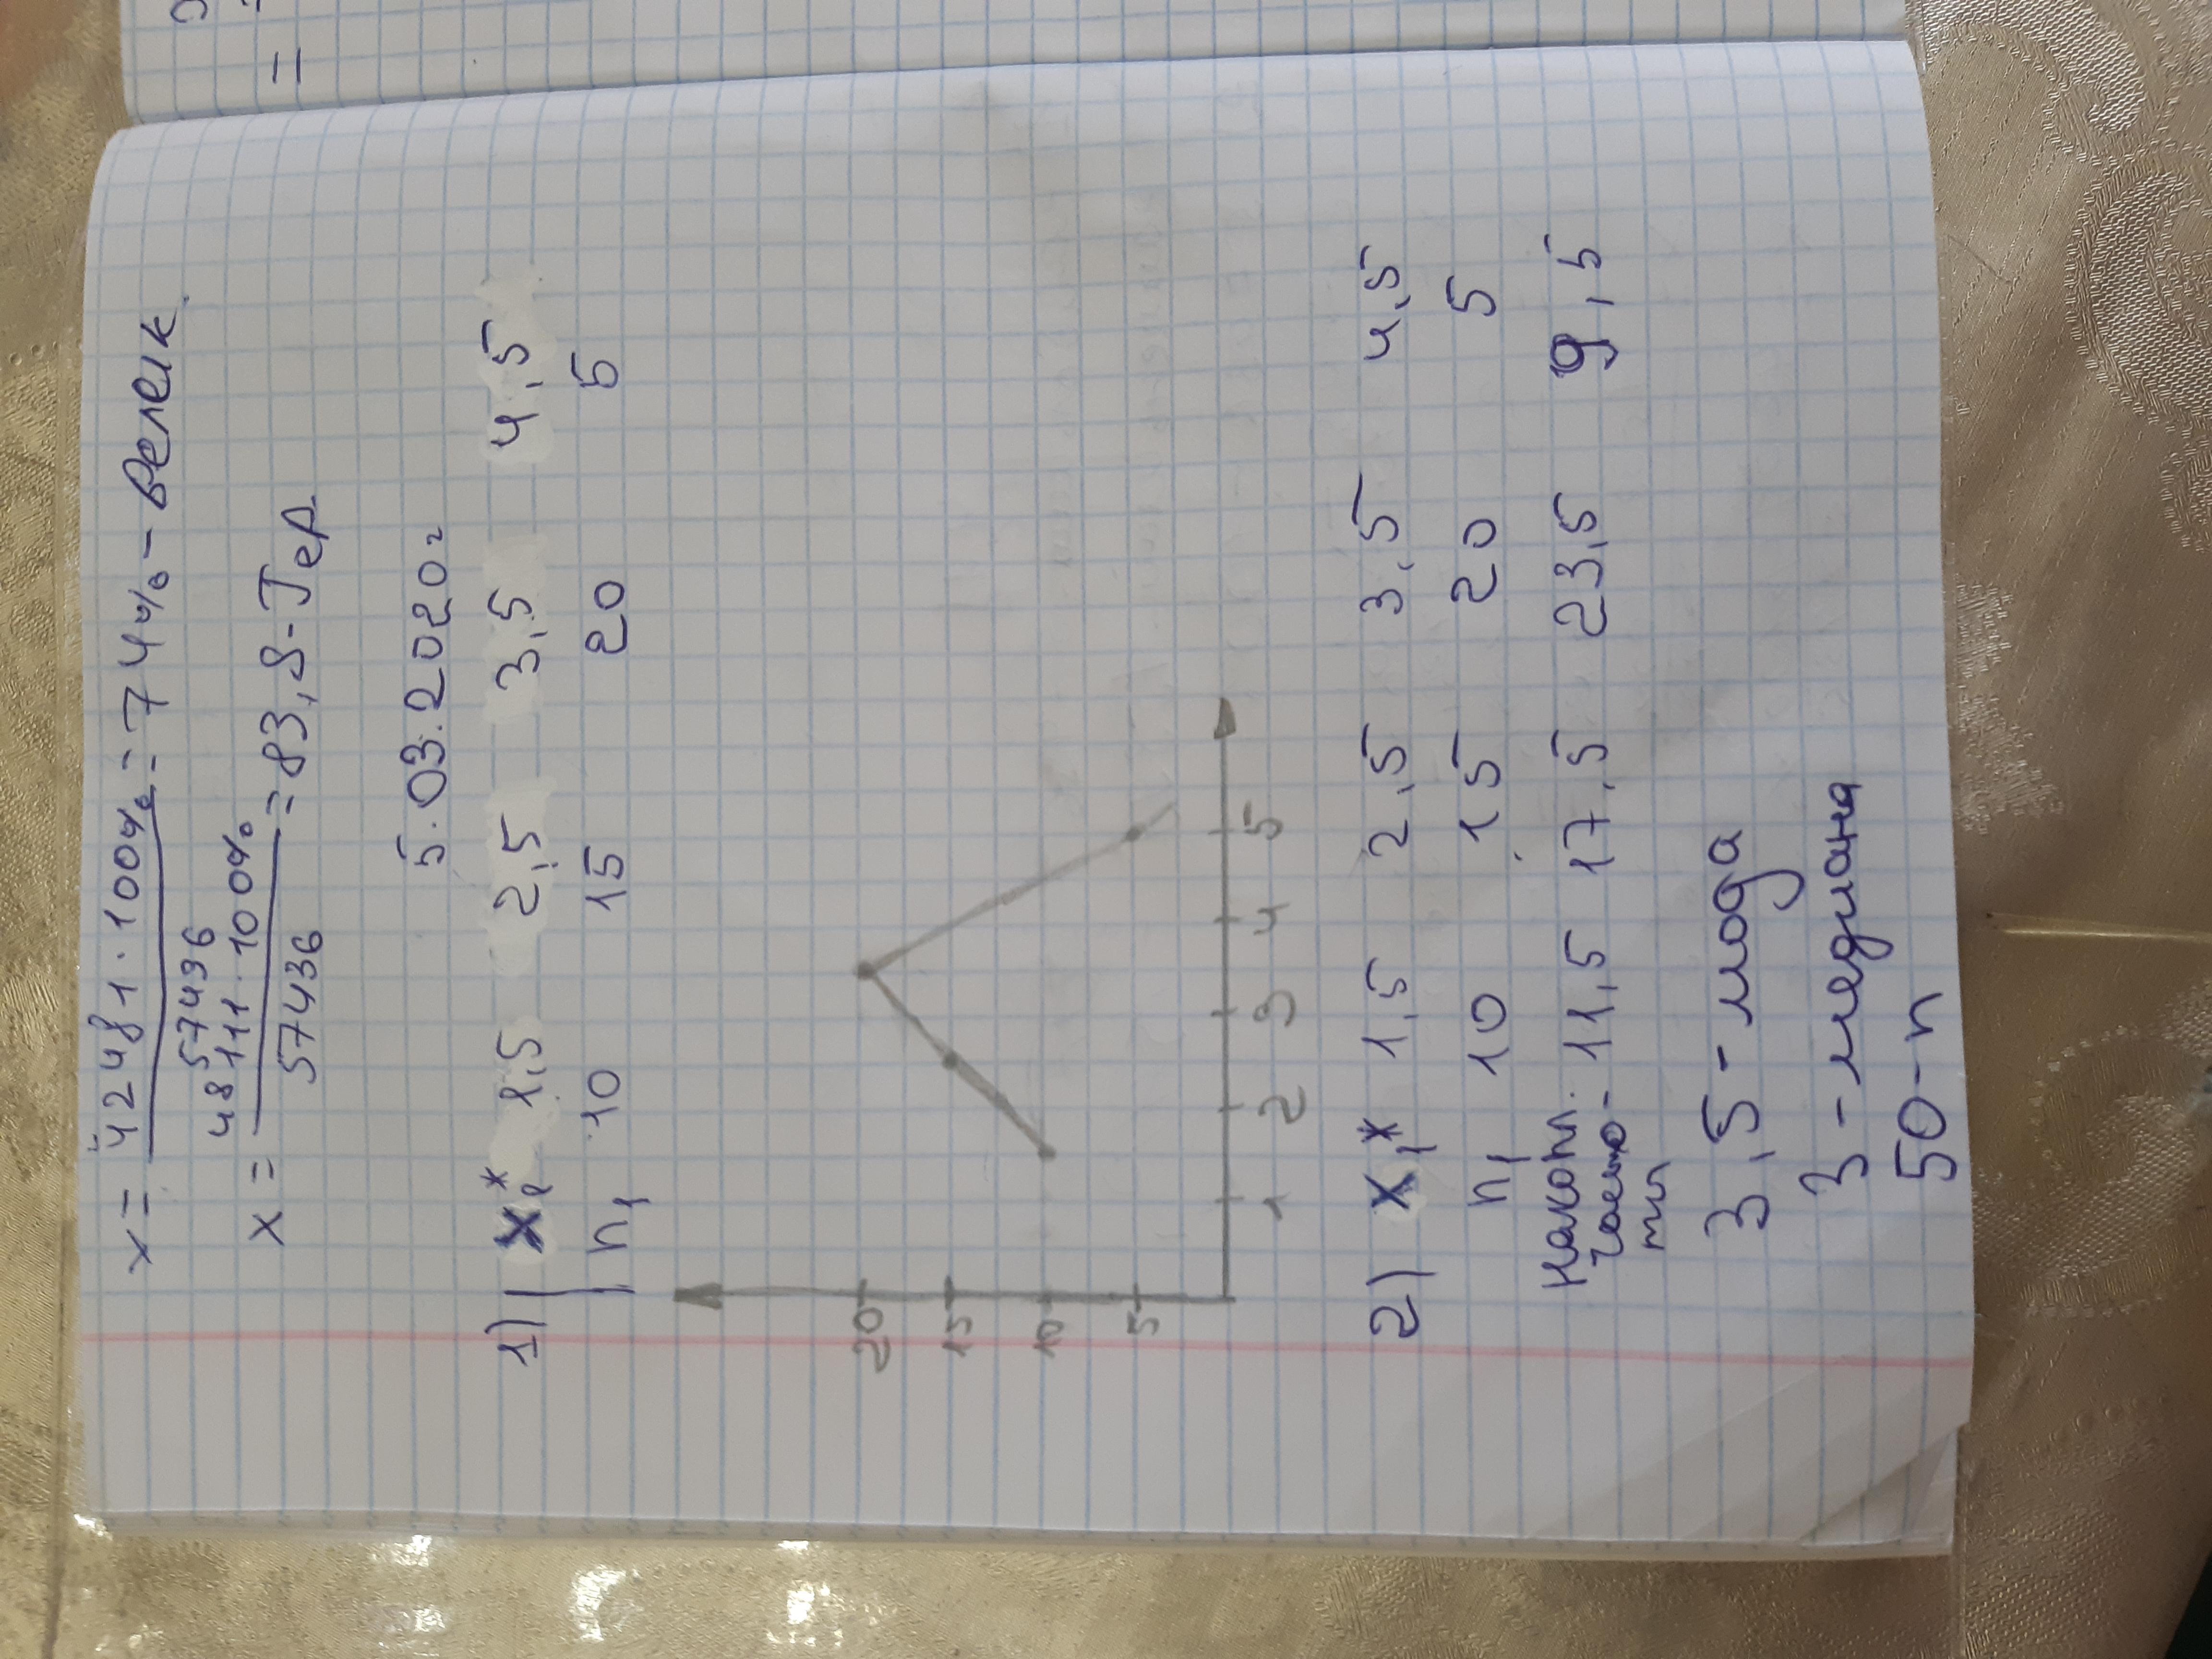 x = 42481 · 100% = 74% - велик
57436
x = 48111 · 100% = 83,8 - Гер
57436
5.03.2020г
1) x₁* 1,5 2,5 3,5 4,5
n₁ 10 15 20 5
20
15
10
5
1 2 3 4 5
2) x₁* 1,5 2,5 3,5 4,5
n₁ 10 15 20 5
Накоп. 11,5 17,5 23,5 9,5
часто-
ты
3,5 - мода
3 - медиана
50 - n